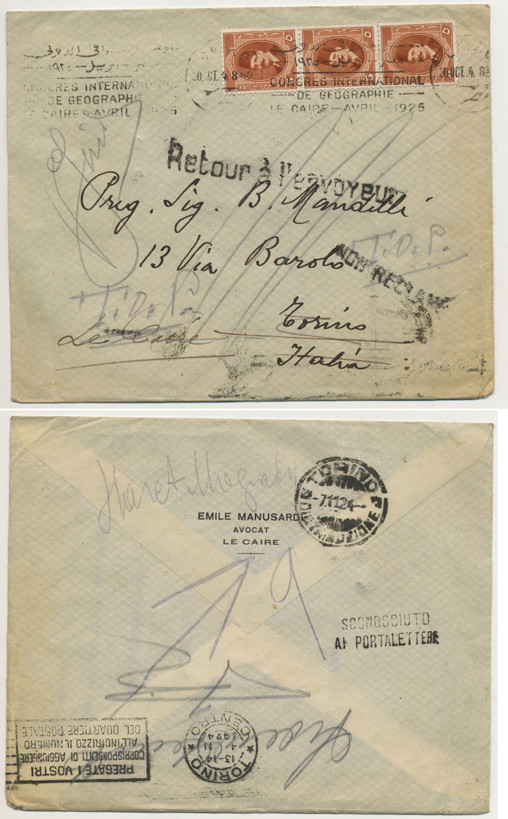 ٥ ٥ ٥
١٩٢٥
CONGRES INTERNATIONAL
DE GEOGRAPHIE
LE CAIRE - AVRIL
30.OCT.4.8
CONGRES INTERNATIONAL
DE GEOGRAPHIE
LE CAIRE - AVRIL - 1925
30.OCT.4.8
Retour à l'envoyeur
Preg. Sig. B. Mandilli
13 Via Barolo
NON RECLAME
Torino
Le Caire
Italia
Haret
TORINO
-7.11.24
DISTRIBUZIONE
EMILE MANUSARDI
AVOCAT
LE CAIRE
SCONOSCIUTO
AI PORTALETTERE
PREGATE I VOSTRI
CORRISPONDENTI DI AGGIUNGERE
ALL'INDIRIZZO IL NUMERO
DEL QUARTIERE POSTALE
TORINO
13-14
4 11
1924
CENTRO